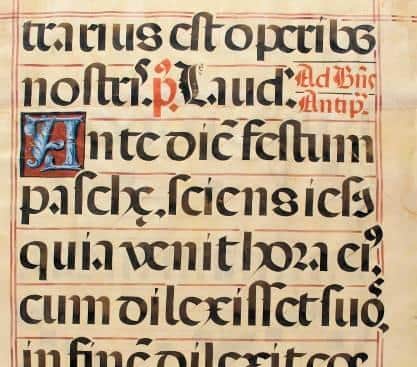 trarius est operibꝯ
nostris. p̃. Laud. Ad Bñc Antip̃.
Ante diē festum
paschę, sciens iesꝯ
quia venit hora eiꝯ,
cum dilexisset suos,
in finē dilexit eos